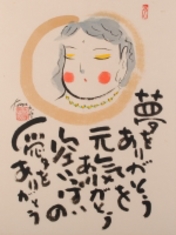 夢を
ありがとう
元気を
ありがとう
心いっぱいの
愛を
ありがとう